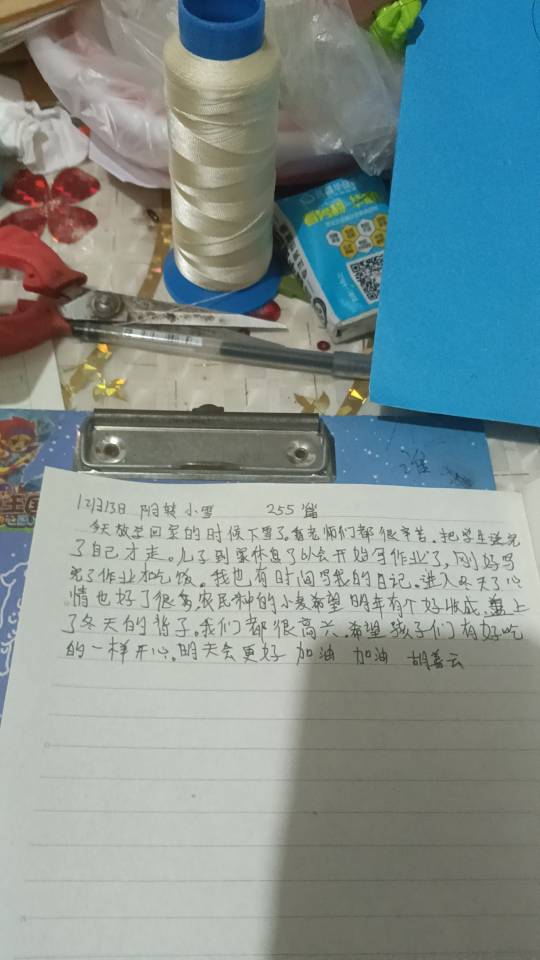 12月13日 阴转小雪 255篇
今天放学回家的时候下雪了。看老师们都很辛苦。把学生送完
了自己才走。儿子到家休息了以会开始写作业了,刚好写
完了作业和吃饭。我也有时间写我的日记。进入冬天了心
情也好了很多农民种的小麦希望明年有个好收成.盖上
了冬天的背子。我们都很高兴.希望孩子们有好吃
的一样开心.明天会更好 加油 加油 胡 云